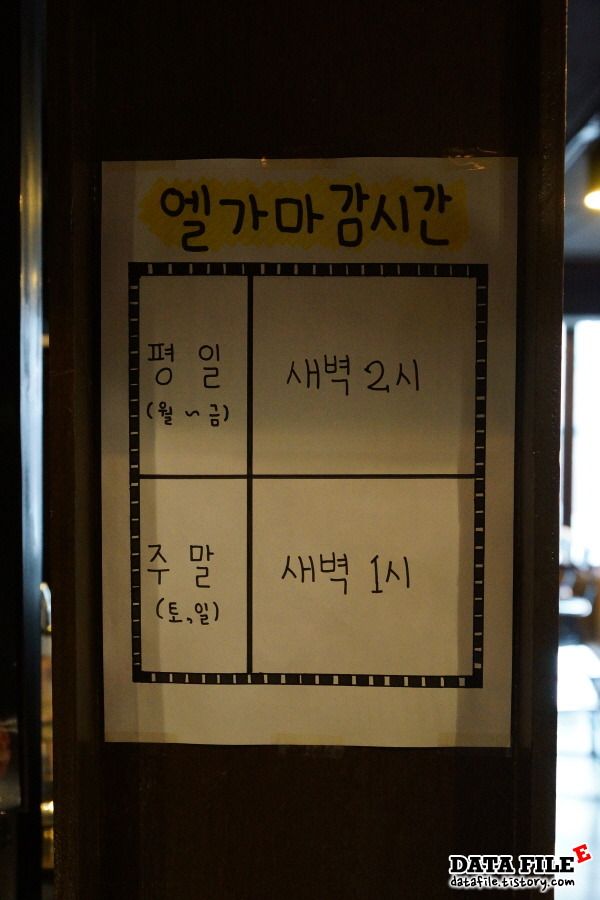 엘가마감시간
평일 새벽 2시
(월~금)
주말 새벽 1시
(토,일)
DATA FILE E
datafile.tistory.com